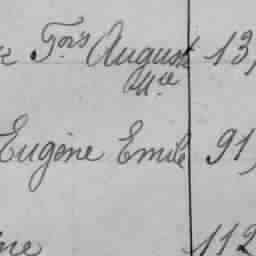 Fois August 13,
Mce
Eugène Emile 91,
112